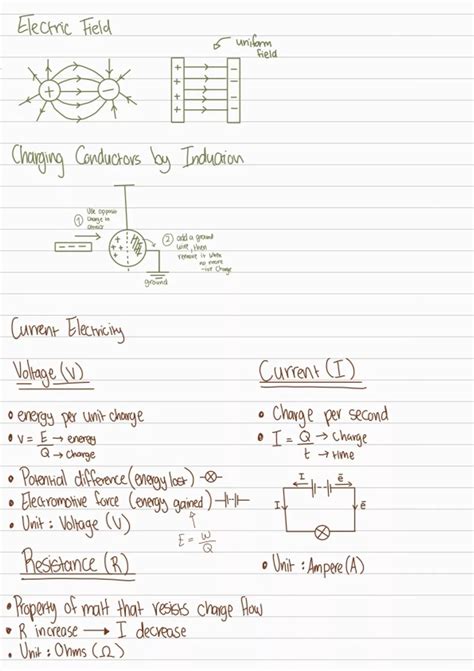 Electric Field
uniform
field
+ −
+ −
+ −
+ −
Charging Conductors by Induction
① Use opposite
charge to
attract
② add a ground
wire, then
remove it when
no more
-ive charge
ground
Current Electricity
Voltage (V)
• energy per unit charge
• V = E → energy
Q → charge
• Potential difference (energy lost)
• Electromotive force (energy gained)
• Unit : Voltage (V)
E = W
Q
Current (I)
• Charge per second
• I = Q → Charge
t → time
I ē
I ē
• Unit : Ampere (A)
Resistance (R)
• Property of matt that resists charge flow
• R increase → I decrease
• Unit : Ohms (Ω)